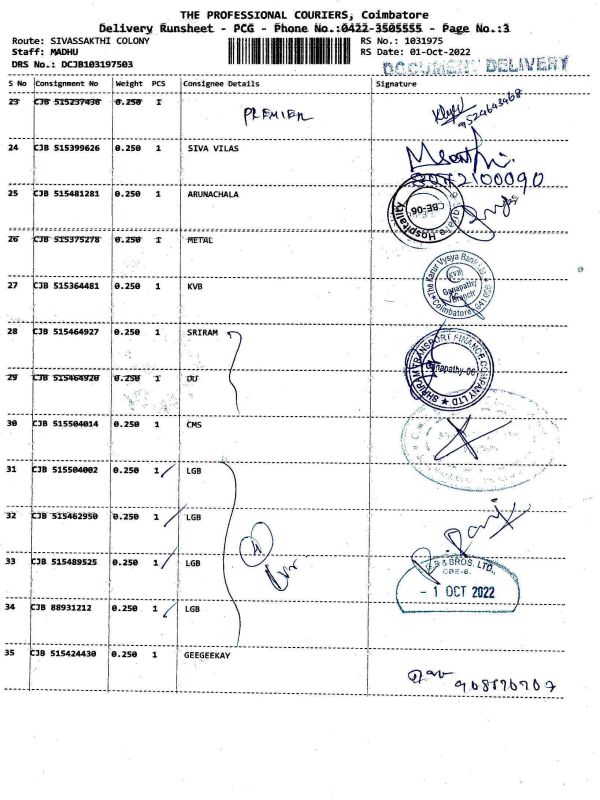 THE PROFESSIONAL COURIERS, Coimbatore
Delivery Runsheet - PCG - Phone No.:0422-3505555 - Page No.:3
Route: SIVASSAKTHI COLONY RS No.: 1031975
Staff: MADHU RS Date: 01-Oct-2022
DRS No.: DCJB103197503 DOCUMENT DELIVERY
S No Consignment No Weight PCS Consignee Details Signature
23 CJB 515237436 0.250 1 PREMIER
9524643468
24 CJB 515399626 0.250 1 SIVA VILAS
25 CJB 515481281 0.250 1 ARUNACHALA
Hospitality
CBE-06
26 CJB 515375278 0.250 1 METAL
27 CJB 515364481 0.250 1 KVB
The Karur Vysya Bank Ltd
KVB
Ganapathy
Branch
Coimbatore - 641 006
28 CJB 515464927 0.250 1 SRIRAM
SHRIRAM TRANSPORT FINANCE COMPANY LTD
Ganapathy-06
29 CJB 515464920 0.250 1 DU
30 CJB 515504014 0.250 1 CMS
31 CJB 515504002 0.250 1 LGB
32 CJB 515462950 0.250 1 LGB
4
33 CJB 515489525 0.250 1 LGB
& BROS, LTD.,
CBE-6.
- 1 OCT 2022
34 CJB 88931212 0.250 1 LGB
35 CJB 515424430 0.250 1 GEEGEEKAY